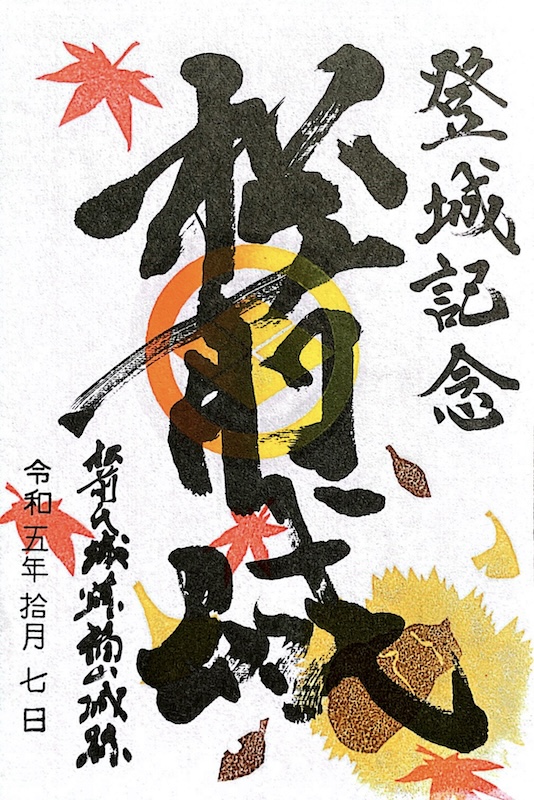 登城記念
松前城
松前氏城跡福山城跡
令和五年 拾月 七日